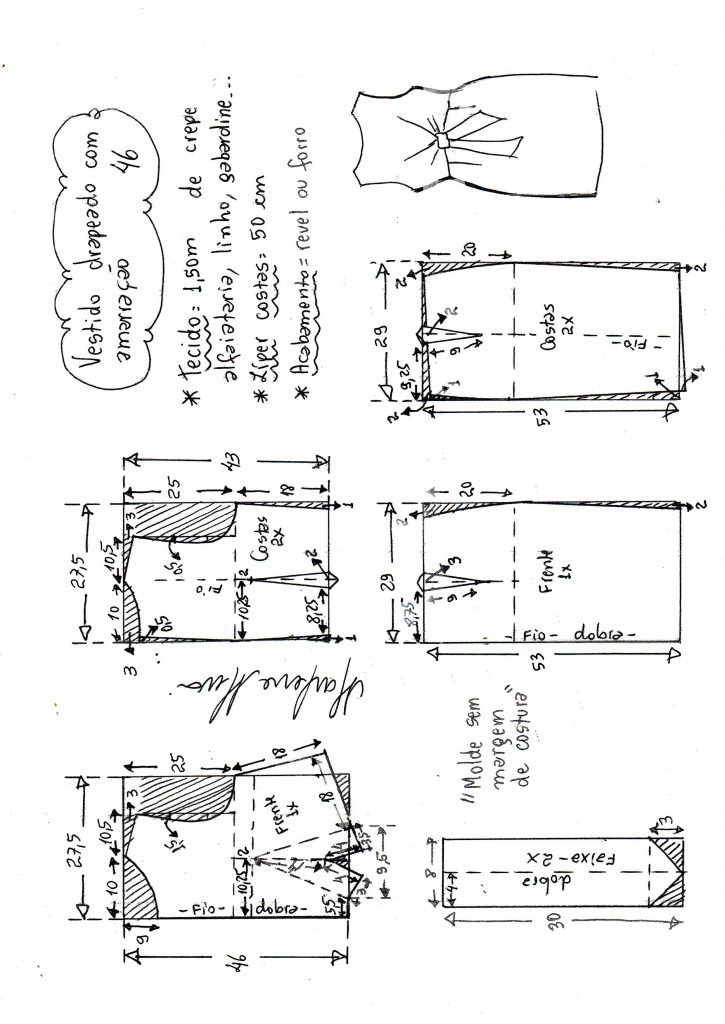 Vestido drapeado com
amarração 46
* Tecido = 1,50m de crepe
alfaiataria, linho, gabardine...
* Zíper costas = 50 cm
* Acabamento = revel ou forro
27,5
10
10,5
3
9
25
46
1,5
Frente
1x
10,25
2
18
18
- Fio - dobra -
5,5
3
4
4
3,5
9,5
Marlene Mukai
27,5
10
10,5
3
3
0,5
0,5
25
43
Fio
Costas
2x
10,25
2
18
8,25
2
1
1
"Molde sem
margem
de costura"
8
4
dobra
Faixa - 2x
30
3
29
8,75
2
20
9
3
Frente
1x
- Fio - dobra -
53
2
29
9,25
2
2
2
1
20
9
Costas
2x
Fio
53
1
1
2